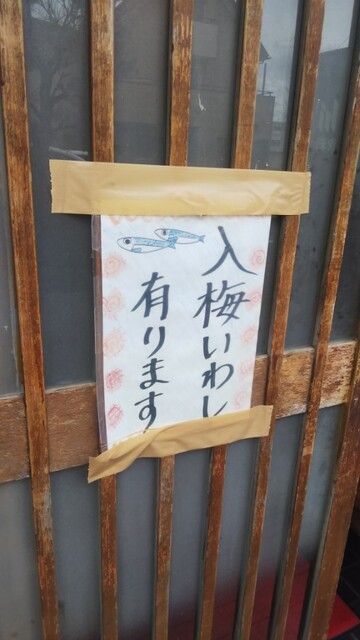 入梅いわし
有ります